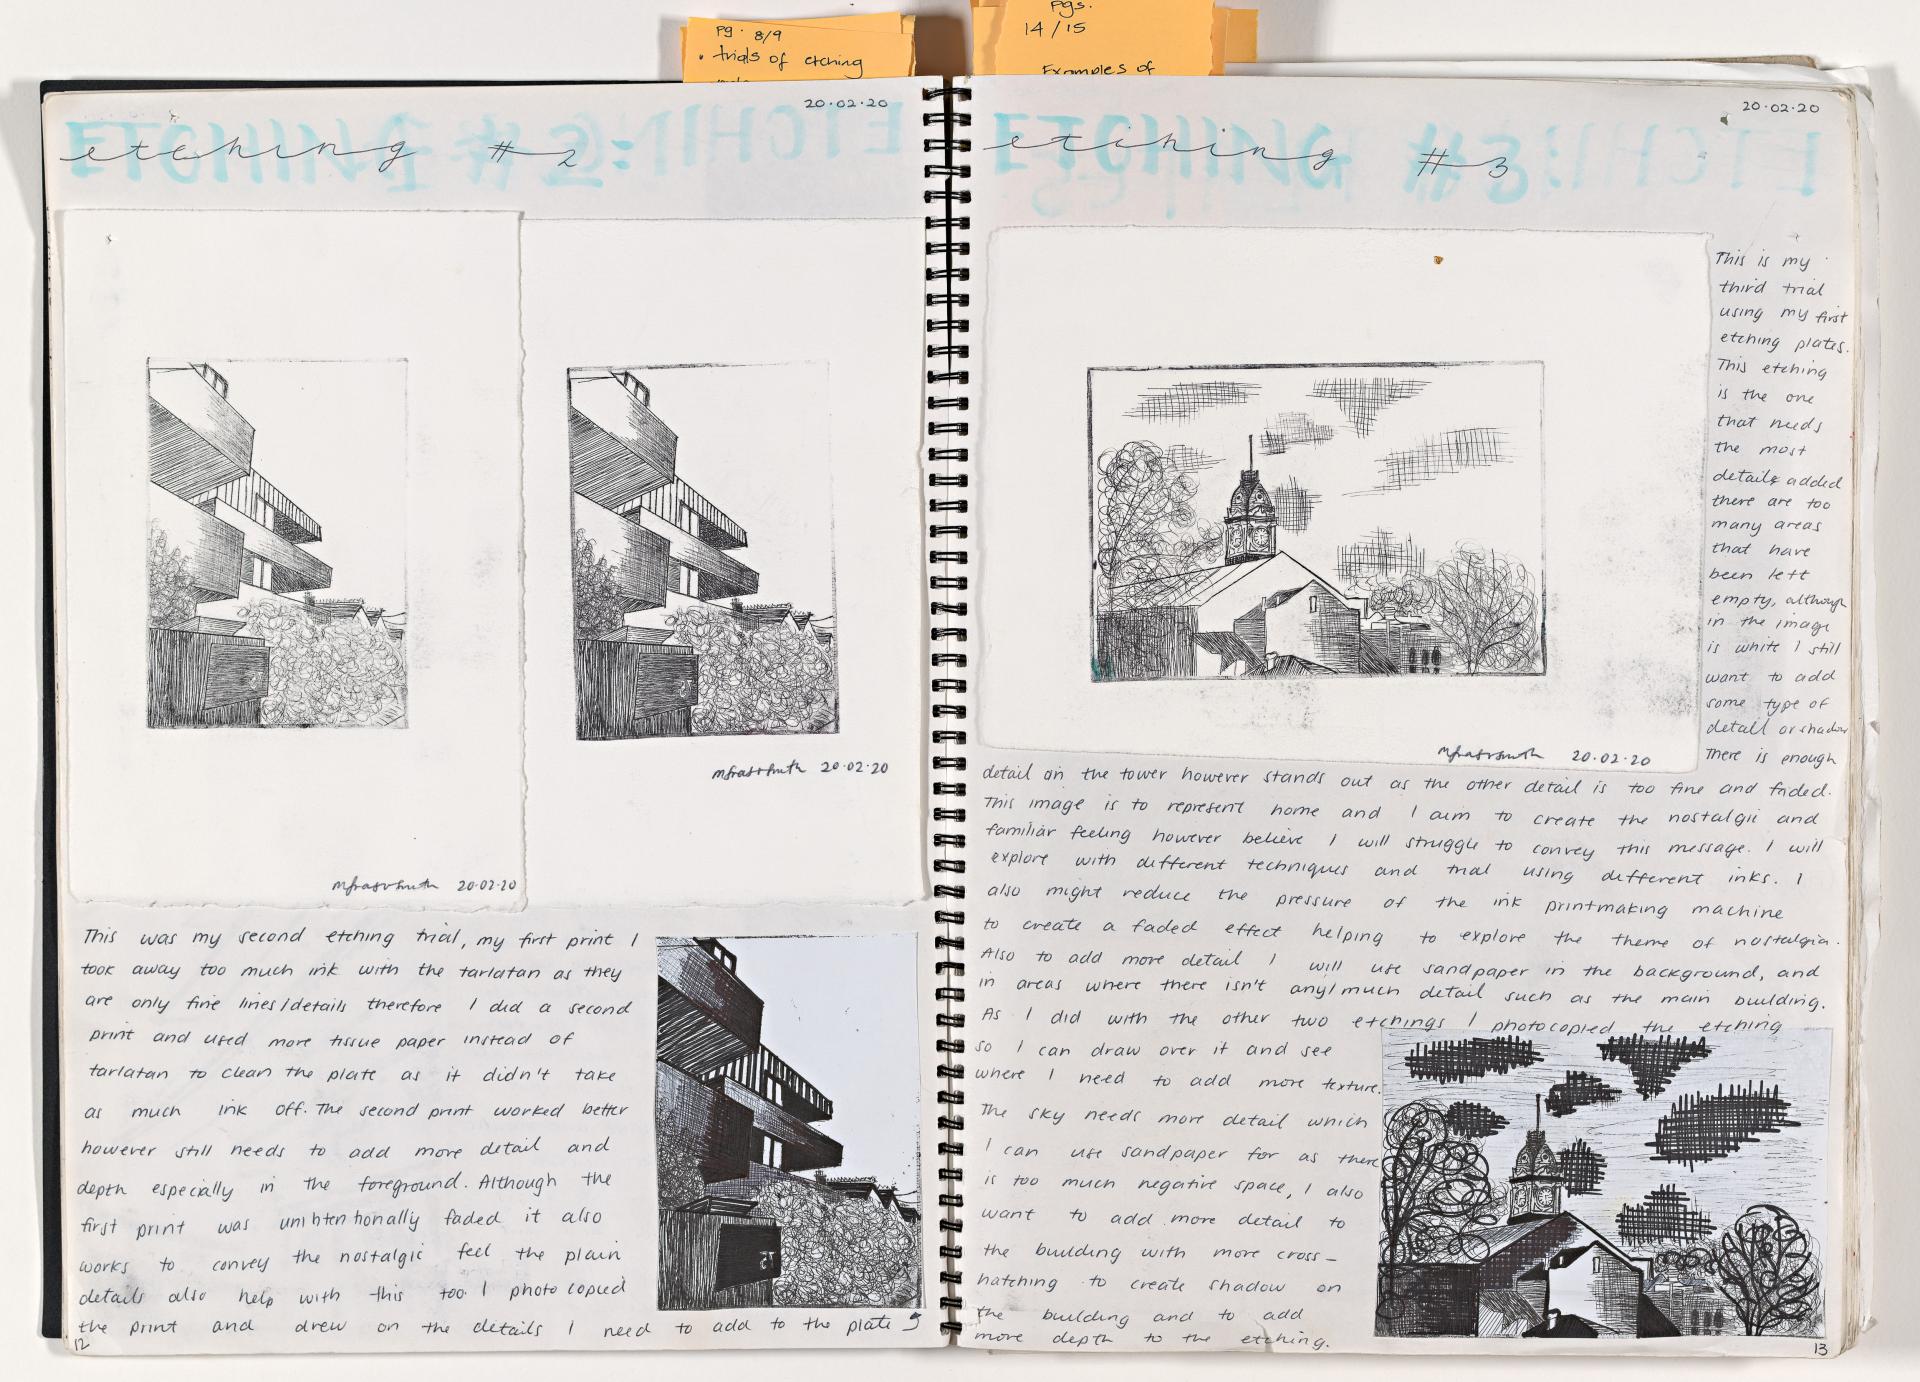 pg. 8/9
• trials of etching
pgs.
14/15
Examples of
20.02.20
etching #2
20.02.20
20.02.20
This was my second etching trial, my first print I
took away too much ink with the tarlatan as they
are only fine lines/details therefore I did a second
print and used more tissue paper instead of
tarlatan to clean the plate as it didn't take
as much ink off. The second print worked better
however still needs to add more detail and
depth especially in the foreground. Although the
first print was unihtentionally faded it also
works to convey the nostalgic feel the plain
details also help with this too. I photocopied
the print and drew on the details I need to add to the plate
12
20.02.20
etching #3
20.02.20
This is my
third trial
using my first
etching plates.
This etching
is the one
that needs
the most
details added
there are too
many areas
that have
been left
empty, although
in the image
is white I still
want to add
some type of
detail or shadow
There is enough
detail on the tower however stands out as the other detail is too fine and faded.
This image is to represent home and I aim to create the nostalgic and
familiar feeling however believe I will struggle to convey this message. I will
explore with different techniques and trial using different inks. I
also might reduce the pressure of the ink printmaking machine
to create a faded effect helping to explore the theme of nostalgia.
Also to add more detail I will use sandpaper in the background, and
in areas where there isn't any/much detail such as the main building.
As I did with the other two etchings I photocopied the etching
so I can draw over it and see
where I need to add more texture.
The sky needs more detail which
I can use sandpaper for as there
is too much negative space, I also
want to add more detail to
the building with more cross-
hatching to create shadow on
the building and to add
more depth to the etching.
13